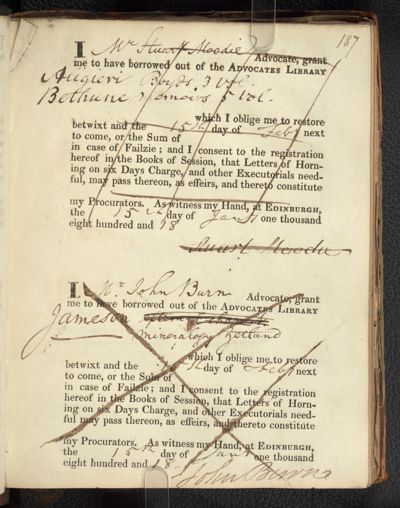 187
I Mr Stuart Moodie Advocate, grant
me to have borrowed out of the ADVOCATES LIBRARY
3 vol.
Bethune Memoirs 5 Vol.
which I oblige me to restore
betwixt and the 15th day of Feby next
to come, or the Sum of
in case of Failzie; and I consent to the registration
hereof in the Books of Session, that Letters of Horn-
ing on six Days Charge, and other Executorials need-
ful, may pass thereon, as effeirs, and thereto constitute
my Procurators. As witness my Hand, at EDINBURGH,
the 15th day of Jany one thousand
eight hundred and 18
Stuart Moodie
I Mr John Burn Advocate, grant
me to have borrowed out of the ADVOCATES LIBRARY
Jameson
mineralogy zetland
which I oblige me to restore
betwixt and the 15th day of Feby next
to come, or the Sum of
in case of Failzie; and I consent to the registration
hereof in the Books of Session, that Letters of Horn-
ing on six Days Charge, and other Executorials need-
ful may pass thereon, as effeirs, and thereto constitute
my Procurators. As witness my Hand, at EDINBURGH,
the 15th day of Jany one thousand
eight hundred and 18
John Burn